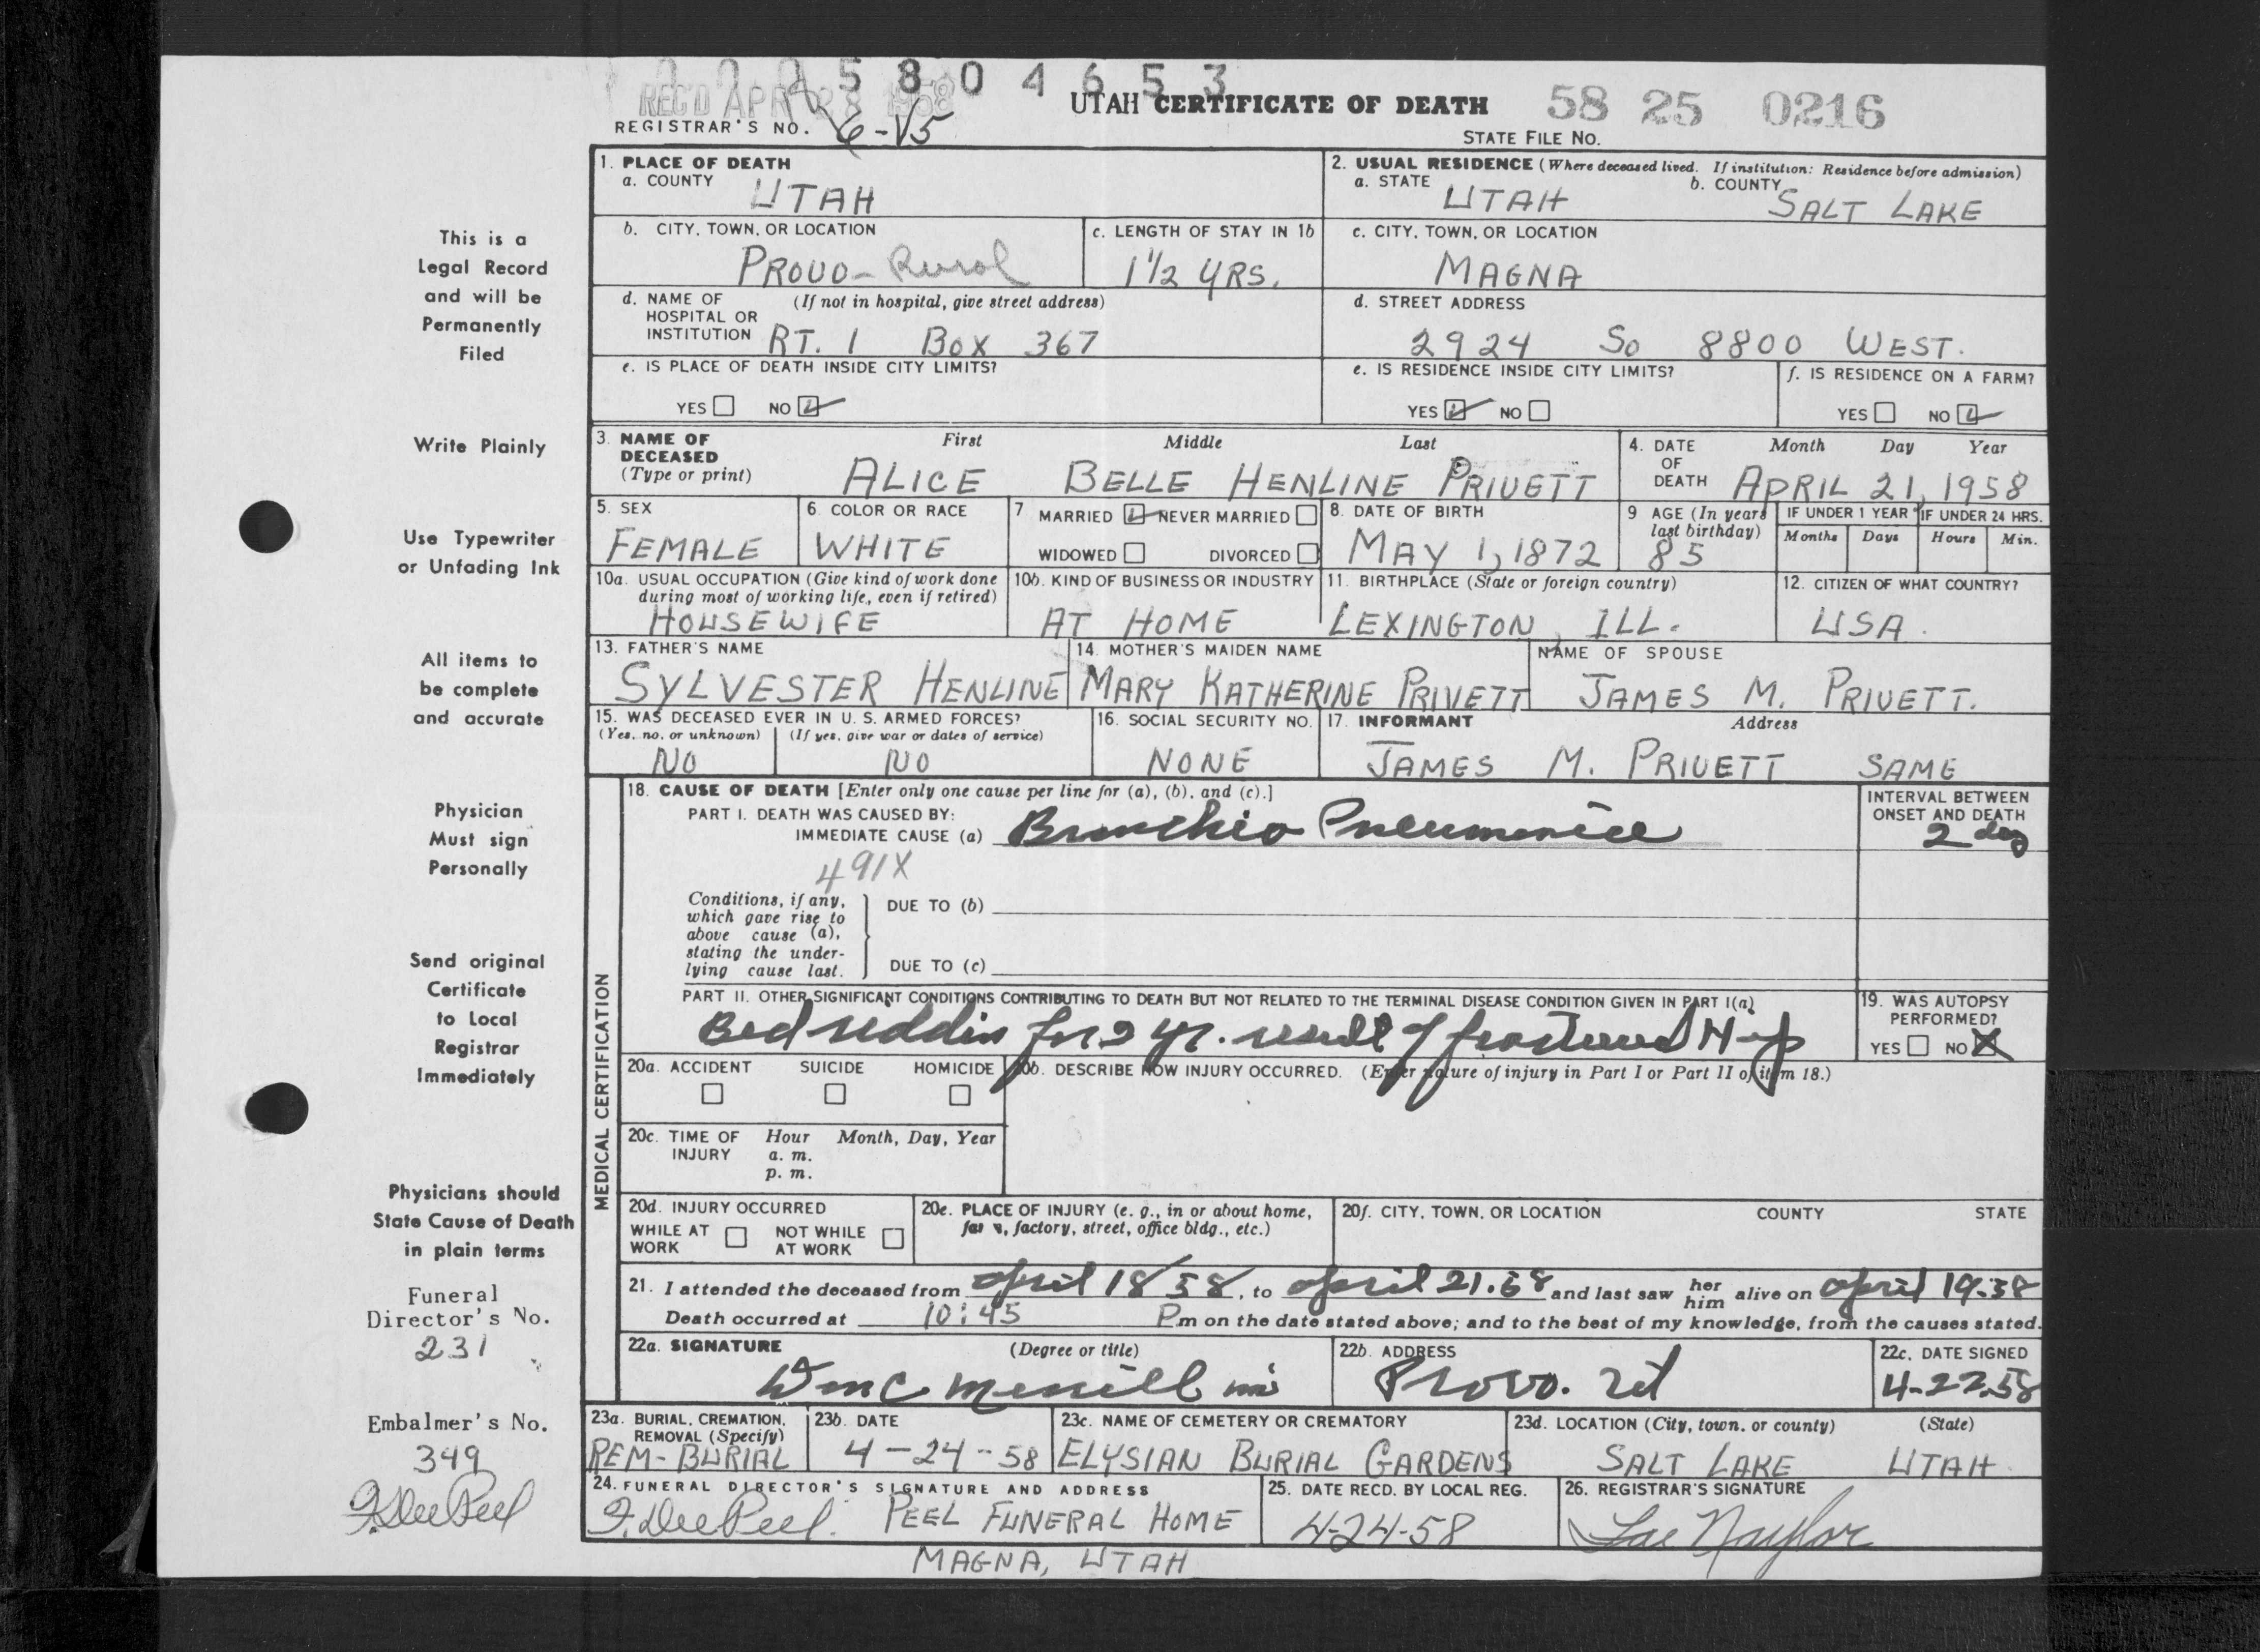 2 2 2 5 8 0 4 6 5 3
REC'D APR 28 1958
UTAH CERTIFICATE OF DEATH
58 25 0216
REGISTRAR'S NO. 6-15
STATE FILE NO.
1. PLACE OF DEATH
a. COUNTY UTAH
2. USUAL RESIDENCE (Where deceased lived. If institution: Residence before admission)
a. STATE UTAH b. COUNTY SALT LAKE
b. CITY, TOWN, OR LOCATION PROVO-Rural
c. LENGTH OF STAY IN 1b 1 1/2 YRS.
c. CITY, TOWN, OR LOCATION MAGNA
d. NAME OF HOSPITAL OR INSTITUTION (If not in hospital, give street address) RT. 1 BOX 367
d. STREET ADDRESS 2924 SO 8800 WEST.
e. IS PLACE OF DEATH INSIDE CITY LIMITS?
YES NO
e. IS RESIDENCE INSIDE CITY LIMITS?
YES NO
f. IS RESIDENCE ON A FARM?
YES NO
3. NAME OF DECEASED (Type or print) First Middle Last
ALICE BELLE HENLINE PRIVETT
4. DATE OF DEATH Month Day Year
APRIL 21, 1958
5. SEX FEMALE
6. COLOR OR RACE WHITE
7 MARRIED NEVER MARRIED
WIDOWED DIVORCED
8. DATE OF BIRTH MAY 1, 1872
9 AGE (In years last birthday) 85
IF UNDER 1 YEAR Months Days
IF UNDER 24 HRS. Hours Min.
10a. USUAL OCCUPATION (Give kind of work done during most of working life, even if retired) HOUSEWIFE
10b. KIND OF BUSINESS OR INDUSTRY AT HOME
11. BIRTHPLACE (State or foreign country) LEXINGTON, ILL.
12. CITIZEN OF WHAT COUNTRY? USA.
13. FATHER'S NAME SYLVESTER HENLINE
14. MOTHER'S MAIDEN NAME MARY KATHERINE PRIVETT
NAME OF SPOUSE JAMES M. PRIVETT.
15. WAS DECEASED EVER IN U. S. ARMED FORCES?
(Yes, no, or unknown) NO (If yes, give war or dates of service) NO
16. SOCIAL SECURITY NO. NONE
17. INFORMANT JAMES M. PRIVETT Address SAME
MEDICAL CERTIFICATION
18. CAUSE OF DEATH [Enter only one cause per line for (a), (b), and (c).]
PART I. DEATH WAS CAUSED BY:
IMMEDIATE CAUSE (a) Bronchio Pneumonia
INTERVAL BETWEEN ONSET AND DEATH
2 day
491X
Conditions, if any, which gave rise to above cause (a), stating the underlying cause last.
DUE TO (b)
DUE TO (c)
PART II. OTHER SIGNIFICANT CONDITIONS CONTRIBUTING TO DEATH BUT NOT RELATED TO THE TERMINAL DISEASE CONDITION GIVEN IN PART I(a)
Bed ridden for 2 yr. result of fractured Hip
19. WAS AUTOPSY PERFORMED?
YES NO X
20a. ACCIDENT SUICIDE HOMICIDE
20b. DESCRIBE HOW INJURY OCCURRED. (Enter nature of injury in Part I or Part II of item 18.)
20c. TIME OF INJURY Hour Month, Day, Year
a. m.
p. m.
20d. INJURY OCCURRED
WHILE AT WORK NOT WHILE AT WORK
20e. PLACE OF INJURY (e. g., in or about home, farm, factory, street, office bldg., etc.)
20f. CITY, TOWN, OR LOCATION COUNTY STATE
21. I attended the deceased from april 18/58, to april 21.58 and last saw her him alive on april 19-58
Death occurred at 10:45 Pm on the date stated above; and to the best of my knowledge, from the causes stated.
22a. SIGNATURE (Degree or title) Wm C Merrill
22b. ADDRESS Provo. Ut
22c. DATE SIGNED 4-22-58
23a. BURIAL, CREMATION, REMOVAL (Specify) REM-BURIAL
23b. DATE 4-24-58
23c. NAME OF CEMETERY OR CREMATORY ELYSIAN BURIAL GARDENS
23d. LOCATION (City, town, or county) (State) SALT LAKE UTAH
24. FUNERAL DIRECTOR'S SIGNATURE AND ADDRESS
F. Dee Peel. PEEL FUNERAL HOME
MAGNA, UTAH
25. DATE RECD. BY LOCAL REG. 4-24-58
26. REGISTRAR'S SIGNATURE
Lae Naylor
This is a
Legal Record
and will be
Permanently
Filed
Write Plainly
Use Typewriter
or Unfading Ink
All items to
be complete
and accurate
Physician
Must sign
Personally
Send original
Certificate
to Local
Registrar
Immediately
Physicians should
State Cause of Death
in plain terms
Funeral
Director's No.
231
Embalmer's No.
349
F. Dee Peel